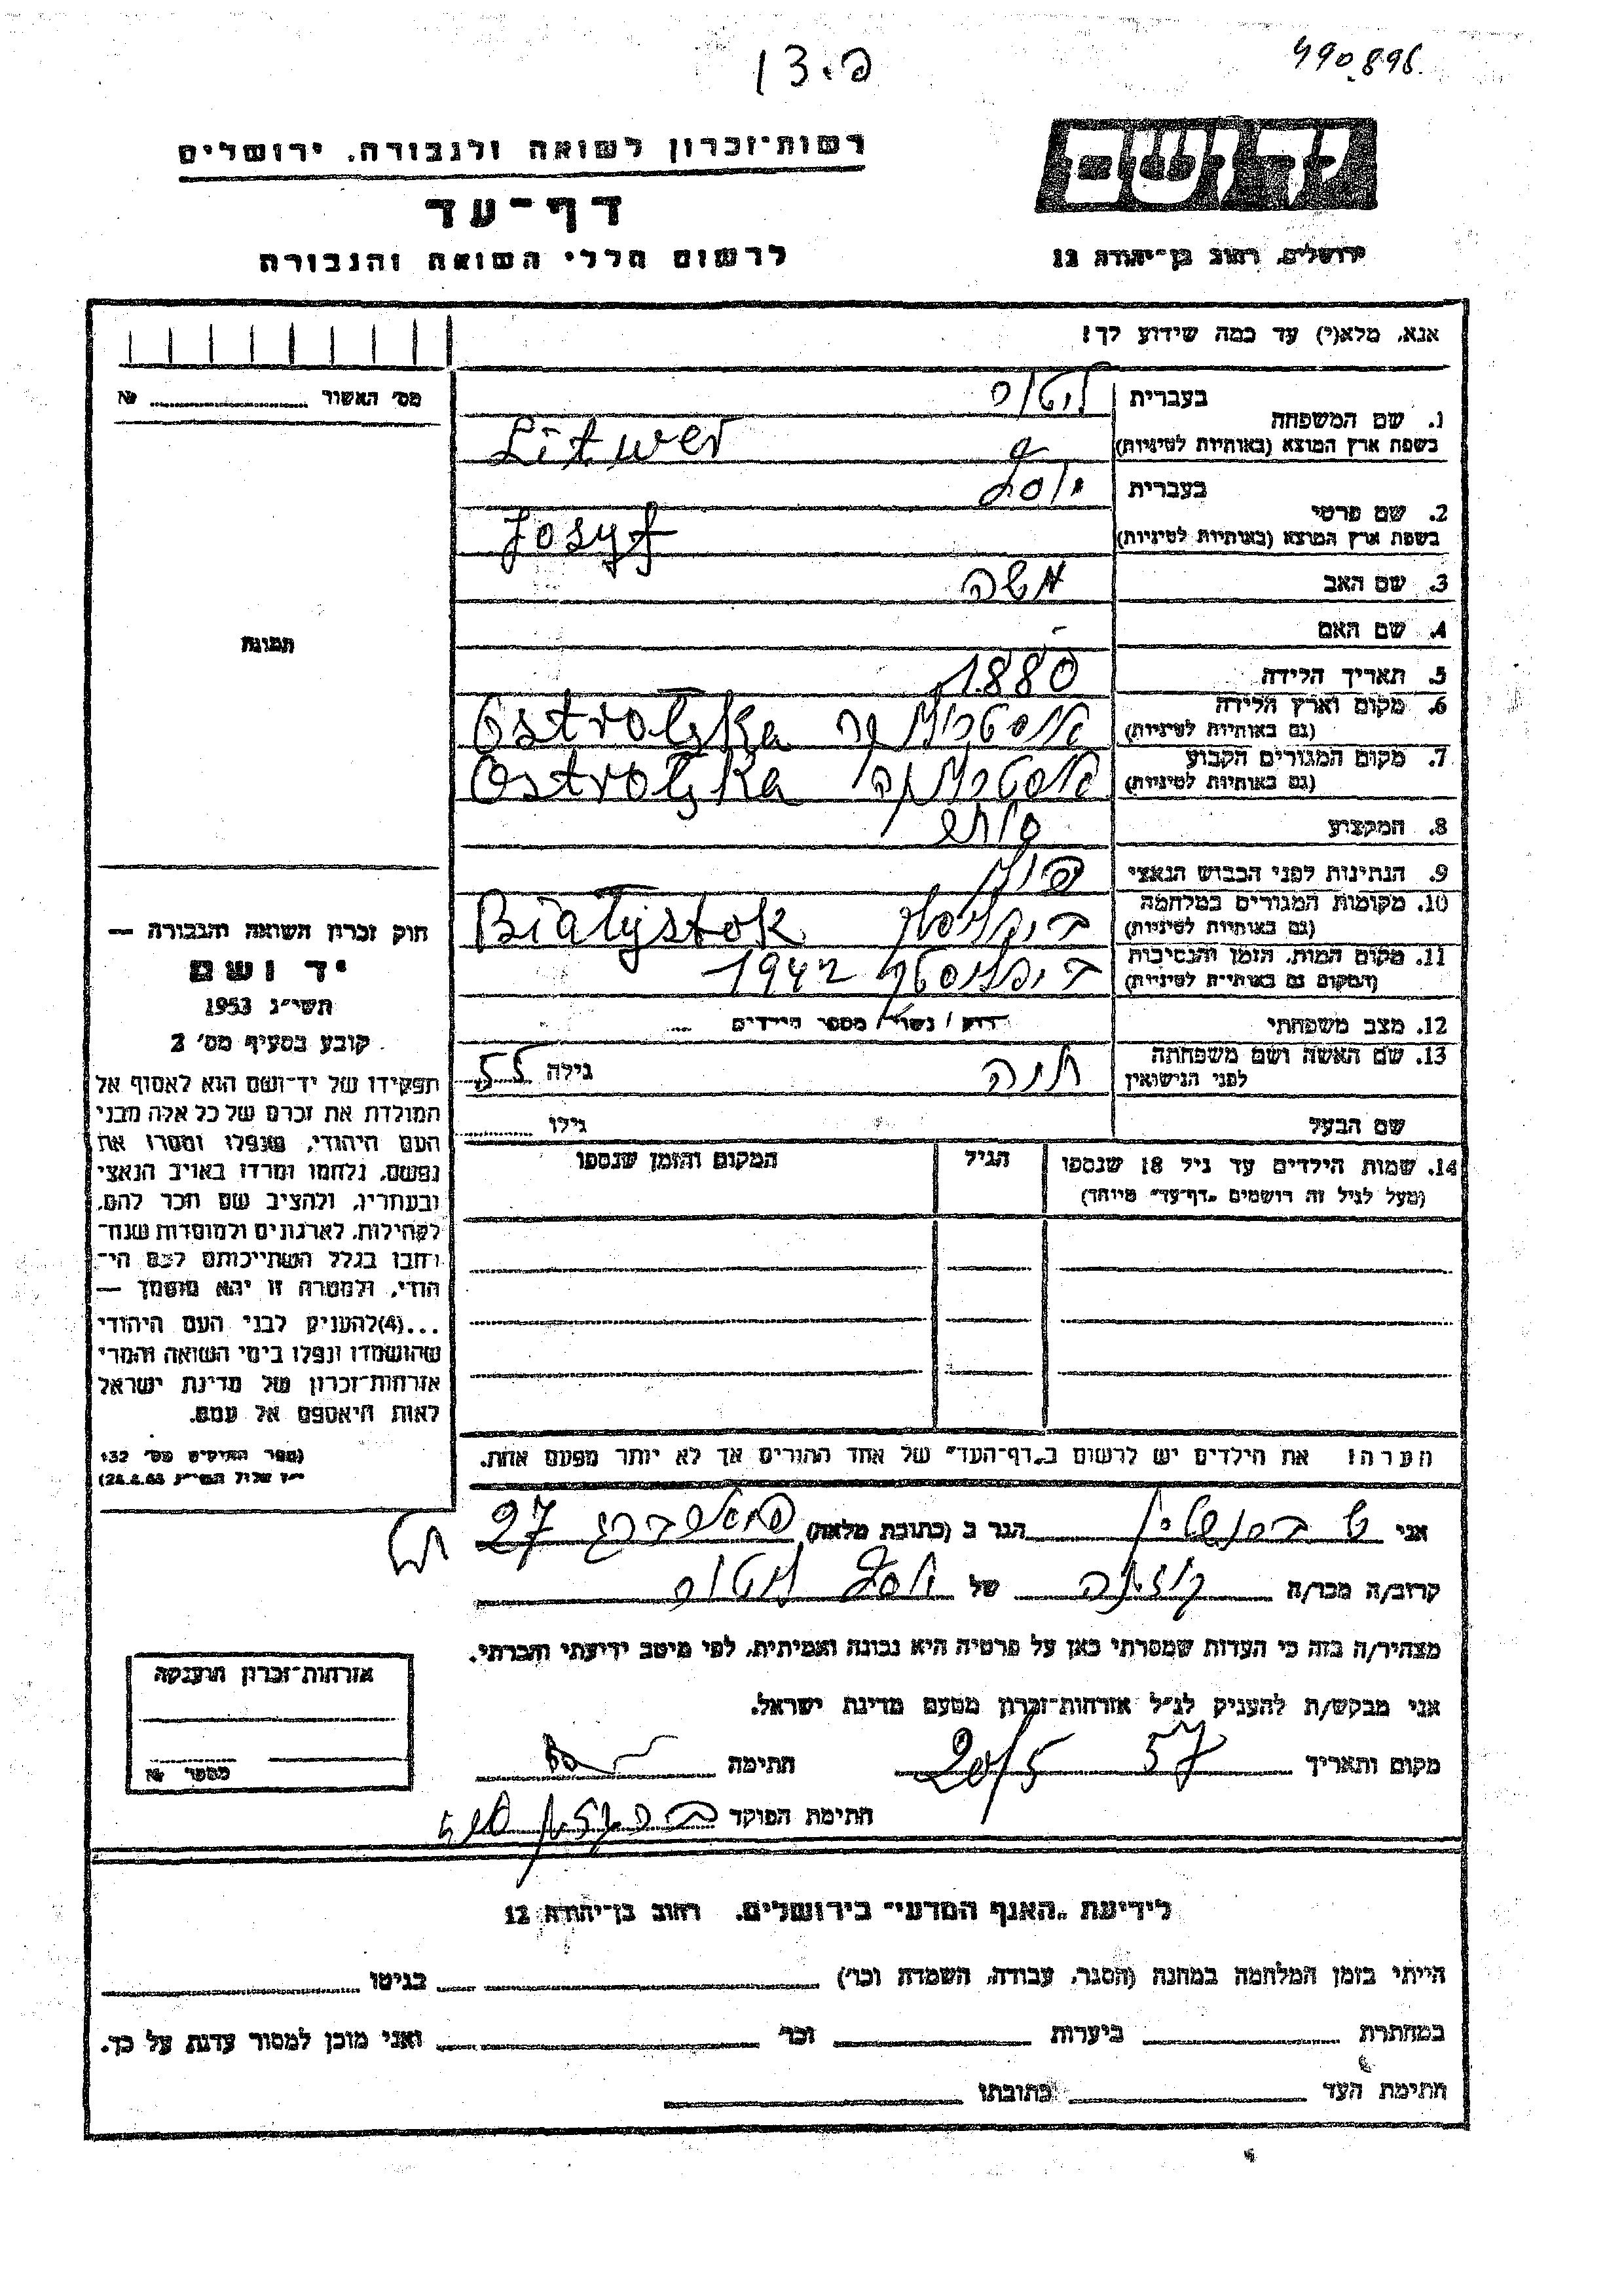 490.896
רשות־זכרון לשואה ולגבורה, ירושלים
דף־עד
לרשום חללי השואה והגבורה
ירושלים, רחוב בן־יהודה 12
אנא, מלא(י) עד כמה שידוע לך!
מס' האשור № 
1. שם המשפחה
בעברית
בשפת ארץ המוצא (באותיות לטיניות) Litwer
2. שם פרטי
בעברית יוסף
בשפת ארץ המוצא (באותיות לטיניות) Josyf
3. שם האב משה
4. שם האם -
5. תאריך הלידה 1880
6. מקום וארץ הלידה
(גם באותיות לטיניות) Ostrolęka
7. מקום המגורים הקבוע
(גם באותיות לטיניות) Ostrolęka
8. המקצוע סוחר
9. הנתינות לפני הכבוש הנאצי פולני
10. מקומות המגורים במלחמה
(גם באותיות לטיניות) Białystok
11. מקום המות, הזמן והנסיבות
(המקום גם באותיות לטיניות) 1942
12. מצב משפחתי רוק / נשוי / מספר הילדים
13. שם האשה ושם משפחתה
לפני הנישואין חנה גילה 55
שם הבעל גילו
14. שמות הילדים עד גיל 18 שנספו הגיל המקום והזמן שנספו
(מעל לגיל זה רושמים „דף־עד" מיוחד)
הערה: את הילדים יש לרשום ב„דף־העד" של אחד ההורים אך לא יותר מפעם אחת.
תמונה
חוק זכרון השואה והגבורה —
יד ושם
תשי"ג 1953
קובע בסעיף מס' 2
תפקידו של יד־ושם הוא לאסוף אל
המולדת את זכרם של כל אלה מבני
העם היהודי, שנפלו ומסרו את
נפשם, נלחמו ומרדו באויב הנאצי
ובעוזריו, ולהציב שם וזכר להם,
לקהילות, לארגונים ולמוסדות שנח־
רבו בגלל השתייכותם לעם הי־
הודי, ולמטרה זו יהא מוסמך —
...(4) להעניק לבני העם היהודי
שהושמדו ונפלו בימי השואה והמרי
אזרחות־זכרון של מדינת ישראל
לאות היאספם אל עמם.
(ספר החוקים מס' 132
אני הגר ב (כתובת מלאה) 27
קרוב/ה מכר/ה של יוסף
מצהיר/ה בזה כי העדות שמסרתי כאן על פרטיה היא נכונה ואמיתית, לפי מיטב ידיעתי והכרתי.
אני מבקש/ת להעניק לנ"ל אזרחות־זכרון מטעם מדינת ישראל.
מקום ותאריך 20/5 57 חתימה
חתימת הפוקד
אזרחות־זכרון הוענקה
מספר №
לידיעת „האגף המדעי" בירושלים, רחוב בן־יהודה 12
הייתי בזמן המלחמה במחנה (הסגר, עבודה, השמדה וכו') בגיטו
במחתרת ביערות וכו' ואני מוכן למסור עדות על כך.
חתימת העד כתובתו